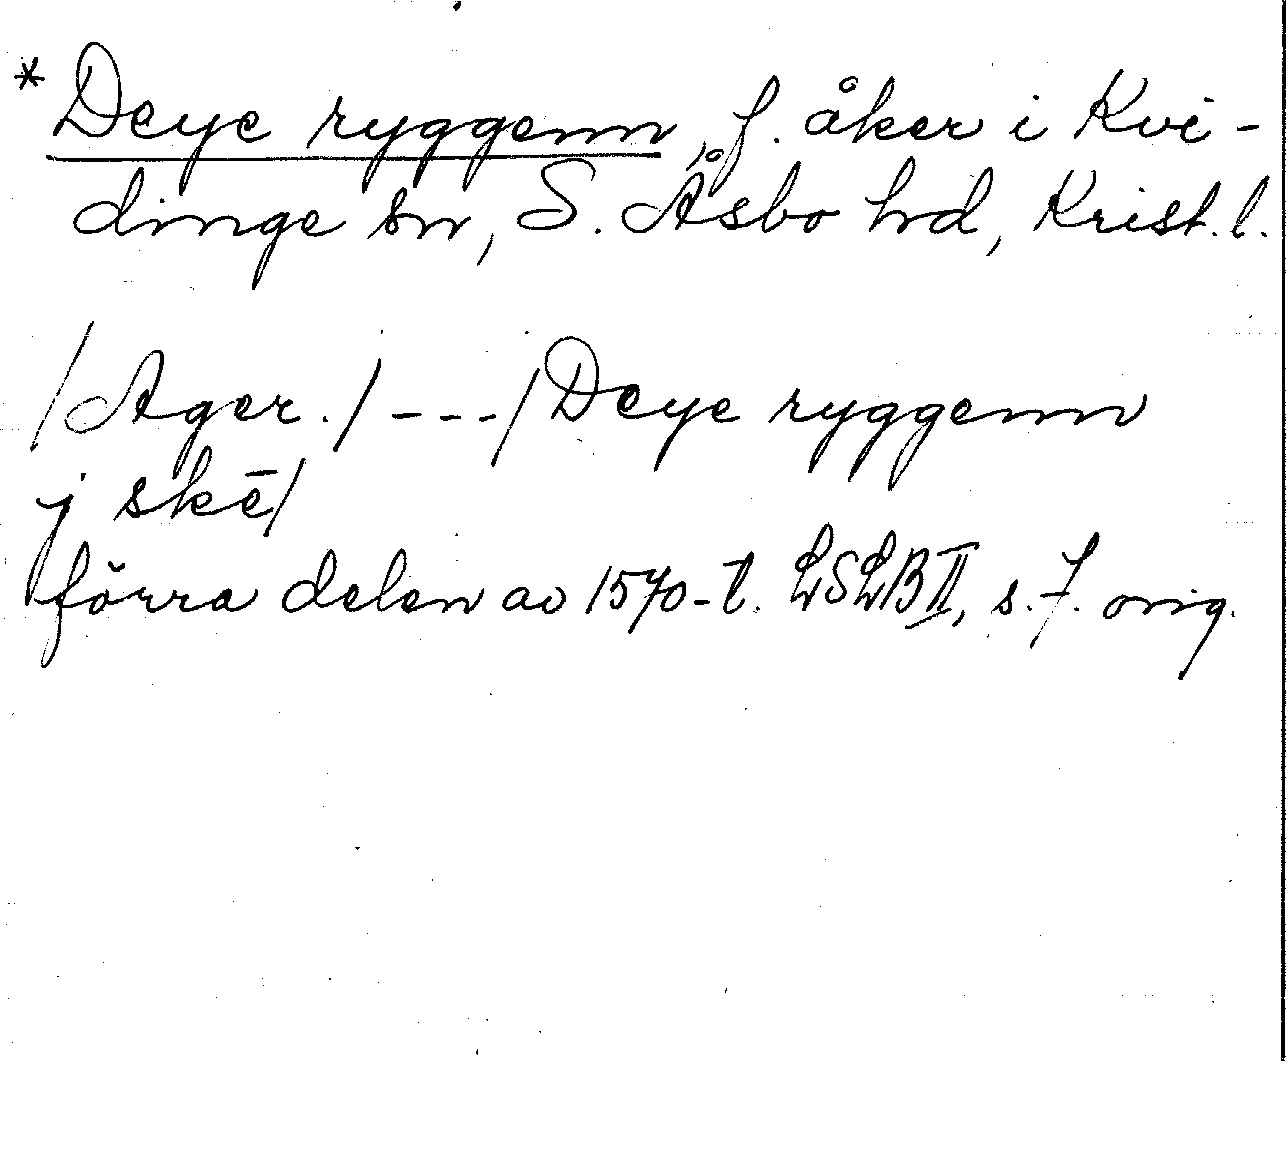 *Deye ryggenn, f. åker i Kvi-
dinge sn, S. Åsbo hd, Krist. l.
/Ager./ --- /Deye ryggenn
j skē/
förra delen av 1570-t. LSLB II, s. 7. orig.